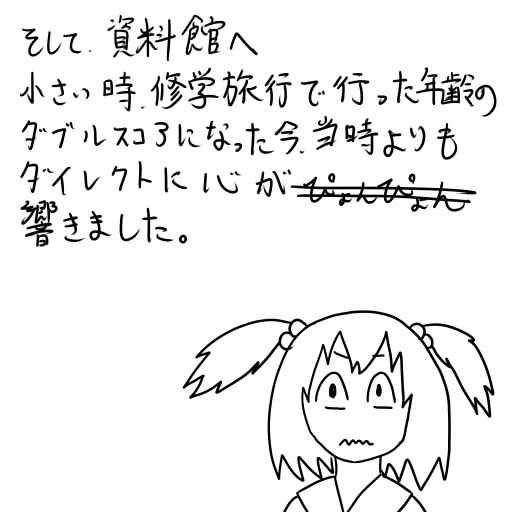 そして、資料館へ
小さい時、修学旅行で行った年齢の
ダブルスコアになった今、当時よりも
ダイレクトに心がぴょんぴょん
響きました。